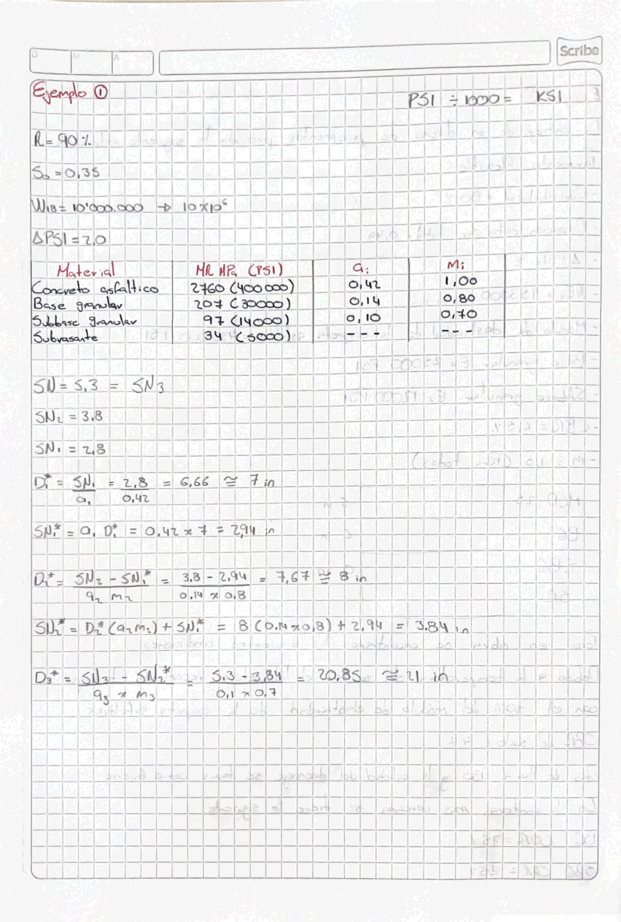 D M A
Scribe
Ejemplo ①
PSI ÷ 1000 = KSI
R = 90 %
So = 0,35
W18 = 10'000.000 → 10x10⁶
ΔPSI = 2.0
Material MR MPa (PSI) ai mi
Concreto asfaltico 2760 (400000) 0,42 1,00
Base granular 207 (30000) 0,14 0,80
Subbase granular 97 (14000) 0,10 0,70
Subrasante 34 (5000) --- ---
SN = 5.3 = SN3
SN2 = 3.8
SN1 = 2,8
D1* = SN1 / a1 = 2.8 / 0,42 = 6,66 ≅ 7 in
SN1* = a1 D1* = 0,42 x 7 = 2,94 in
D2* = SN2 - SN1* / a2 m2 = 3.8 - 2.94 / 0.14 x 0.8 = 7,67 ≅ 8 in
SN2* = D2* (a2 m2) + SN1* = 8 (0.14 x 0,8) + 2.94 = 3.84 in
D3* = SN3 - SN2* / a3 x m3 = 5.3 - 3,84 / 0.1 x 0.7 = 20,85 ≅ 21 in